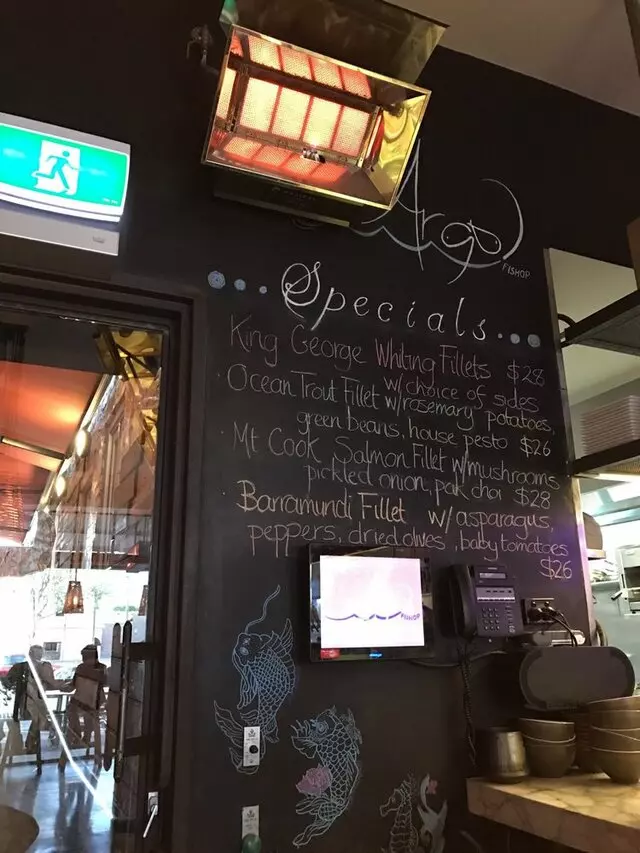 Argo
FISHOP
Specials
King George Whiting Fillets $28
w/choice of sides
Ocean Trout Fillet w/rosemary potatoes,
green beans, house pesto $26
Mt Cook Salmon Fillet w/mushrooms
pickled onion, pak choi $28
Barramundi Fillet w/asparagus,
peppers, dried olives, baby tomatoes
$26
FISHOP